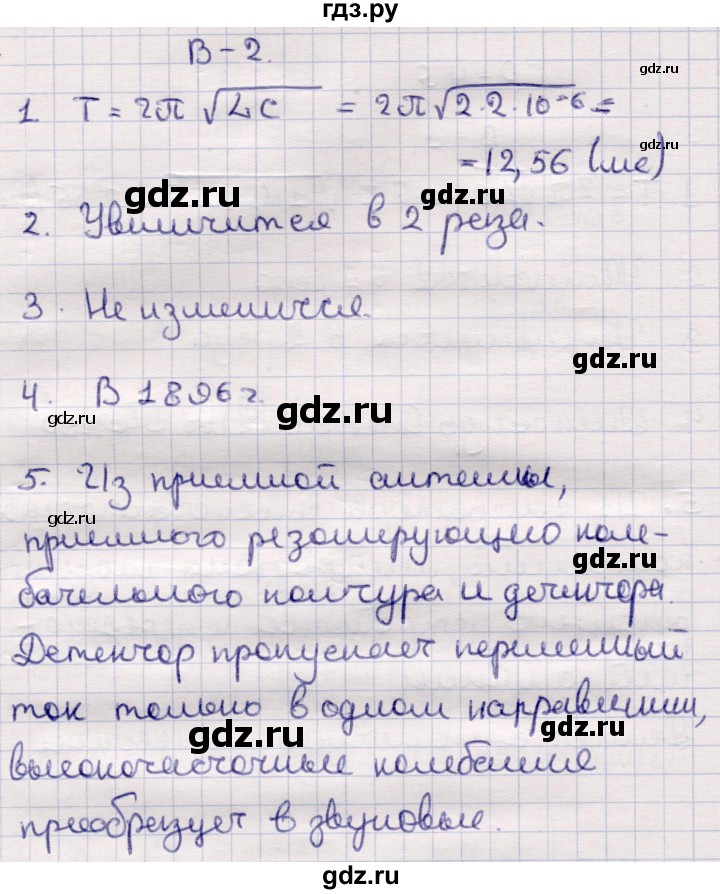 гдз.ру
В-2.
gdz.ru
1. T = 2π √LC = 2π√2·2·10⁻⁶ =
gdz.ru
= 12,56 (мс)
gdz.ru
gdz.ru
2. Увеличится в 2 раза.
3. Не изменится.
gdz.ru
4. В 1896 г.
gdz.ru
gdz.ru
5. Из приемной антенны,
gdz.ru
приемного резонирующего коле-
gdz.ru
бательного контура и детектора.
Детектор пропускает переменный
ток только в одном направлении,
gdz.ru
gdz.ru
высокочастотные колебания
преобразует в звуковые.
gdz.ru
gdz.ru